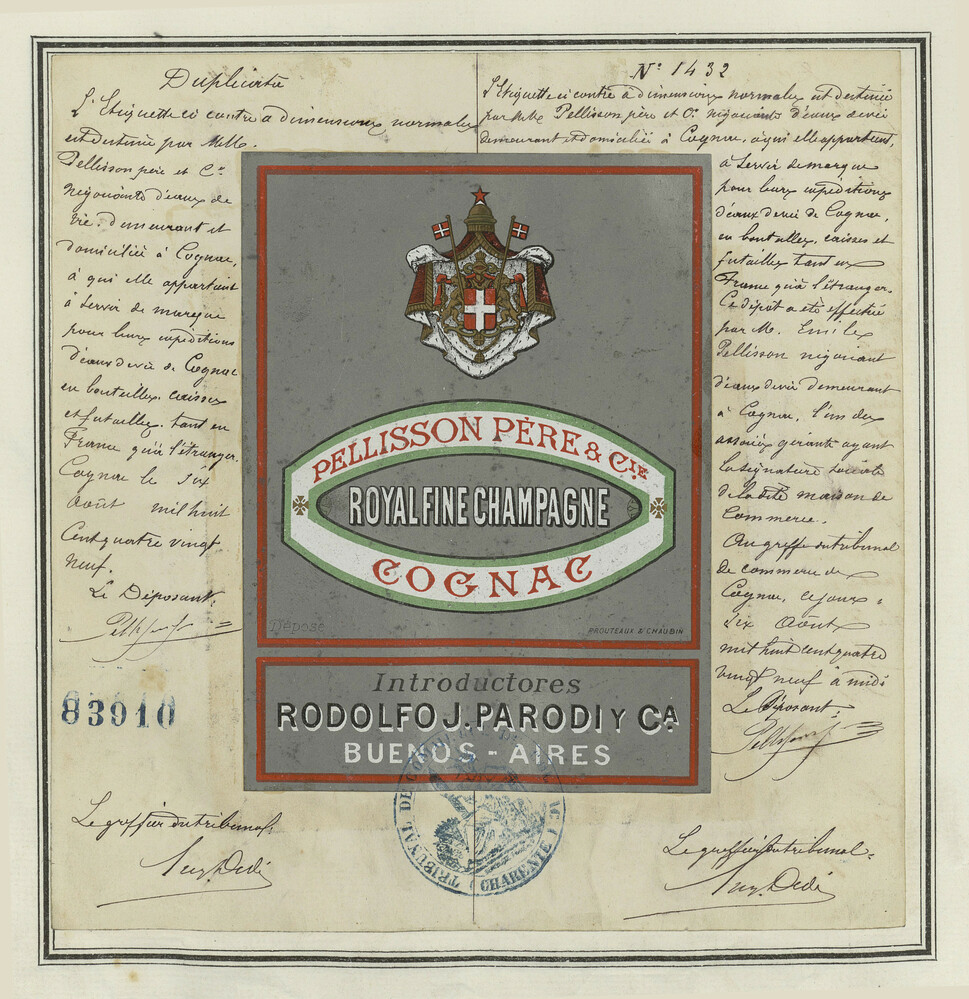 Duplicata
L'Etiquette ci contre a dimensions normales
est destinée par MM.
Pellisson père et Cie
Négociants d'eaux de
vie, demeurant et
domiciliés à Cognac,
à qui elle appartient
à servir de marque
pour leurs expéditions
d'eaux de vie de Cognac
en bouteilles, caisses
et futailles, tant en
France qu'à l'étranger.
Cognac le six
Août mil huit
Cent quatre vingt
neuf.
Le Déposant,
83910
Le greffier du tribunal,
No 1432
L'Etiquette ci contre a dimensions normales est destinée
par MM. Pellisson père et Cie négociants d'eaux de vie
demeurant et domiciliés à Cognac, à qui elle appartient,
à servir de marque
pour leurs expéditions
d'eaux de vie de Cognac,
en bouteilles, caisses et
futailles tant en
France qu'à l'étranger.
Ce dépôt a été effectué
par M. Emile
Pellisson négociant
d'eaux de vie demeurant
à Cognac, l'un des
associés gérants ayant
la signature sociale
de la dite maison de
Commerce.
Au greffe du tribunal
de commerce de
Cognac, ce jour,
six Août
mil huit cent quatre
vingt neuf à midi
Le Déposant,
Le greffier du tribunal,
PELLISSON PÈRE & CIE
ROYAL FINE CHAMPAGNE
COGNAC
Déposé
PROUTEAUX & CHAUBIN
Introductores
RODOLFO J. PARODI Y CA
BUENOS-AIRES
TRIBUNAL DE
CHARENTE